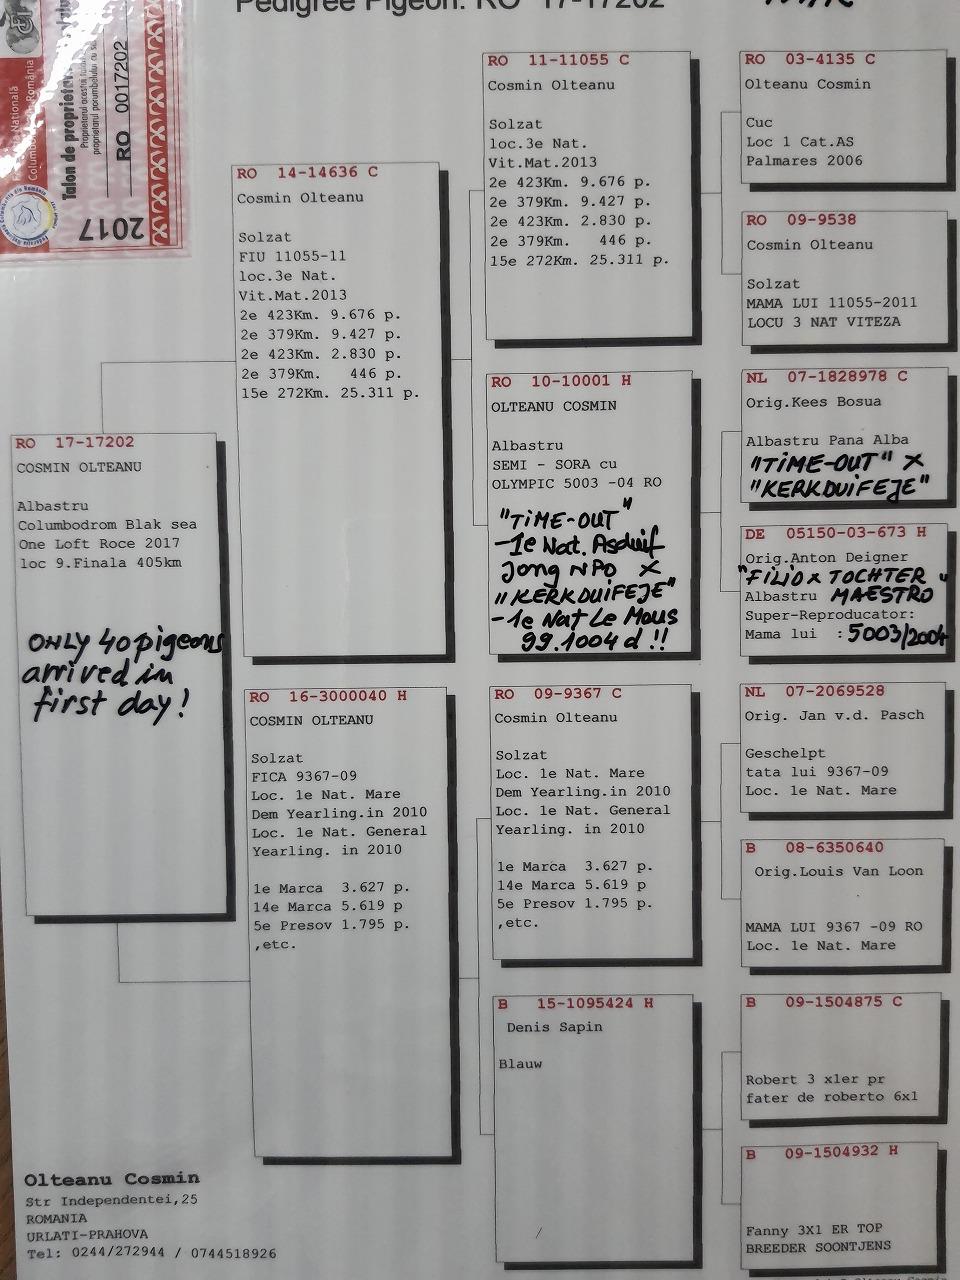 Pedigree Pigeon: RO 17-17202
Talon de proprietate
RO 0017202
2017
RO 17-17202
COSMIN OLTEANU
Albastru
Columbodrom Blak sea
One Loft Roce 2017
loc 9.Finala 405km
ONLY 40 pigeons
arrived in
first day!
RO 14-14636 C
Cosmin Olteanu
Solzat
FIU 11055-11
loc.3e Nat.
Vit.Mat.2013
2e 423Km. 9.676 p.
2e 379Km. 9.427 p.
2e 423Km. 2.830 p.
2e 379Km. 446 p.
15e 272Km. 25.311 p.
RO 16-3000040 H
COSMIN OLTEANU
Solzat
FICA 9367-09
Loc. 1e Nat. Mare
Dem Yearling.in 2010
Loc. 1e Nat. General
Yearling. in 2010
1e Marca 3.627 p.
14e Marca 5.619 p
5e Presov 1.795 p.
,etc.
RO 11-11055 C
Cosmin Olteanu
Solzat
loc.3e Nat.
Vit.Mat.2013
2e 423Km. 9.676 p.
2e 379Km. 9.427 p.
2e 423Km. 2.830 p.
2e 379Km. 446 p.
15e 272Km. 25.311 p.
RO 10-10001 H
OLTEANU COSMIN
Albastru
SEMI - SORA cu
OLYMPIC 5003 -04 RO
"TIME-OUT"
-1e Nat. Asduif
Jong NPO X
"KERKDUIFEJE"
-1e Nat Le Mans
99.1004 d !!
RO 09-9367 C
Cosmin Olteanu
Solzat
Loc. 1e Nat. Mare
Dem Yearling.in 2010
Loc. 1e Nat. General
Yearling. in 2010
1e Marca 3.627 p.
14e Marca 5.619 p
5e Presov 1.795 p.
,etc.
B 15-1095424 H
Denis Sapin
Blauw
RO 03-4135 C
Olteanu Cosmin
Cuc
Loc 1 Cat.AS
Palmares 2006
RO 09-9538
Cosmin Olteanu
Solzat
MAMA LUI 11055-2011
LOCU 3 NAT VITEZA
NL 07-1828978 C
Orig.Kees Bosua
Albastru Pana Alba
"TIME-OUT" X
"KERKDUIFEJE"
DE 05150-03-673 H
Orig.Anton Deigner
"FILIO X TOCHTER"
Albastru MAESTRO
Super-Reproducator:
Mama lui : 5003/2004
NL 07-2069528
Orig. Jan v.d. Pasch
Geschelpt
tata lui 9367-09
Loc. 1e Nat. Mare
B 08-6350640
Orig.Louis Van Loon
MAMA LUI 9367 -09 RO
Loc. 1e Nat. Mare
B 09-1504875 C
Robert 3 x1er pr
fater de roberto 6x1
B 09-1504932 H
Fanny 3X1 ER TOP
BREEDER SOONTJENS
Olteanu Cosmin
Str Independentei,25
ROMANIA
URLATI-PRAHOVA
Tel: 0244/272944 / 0744518926